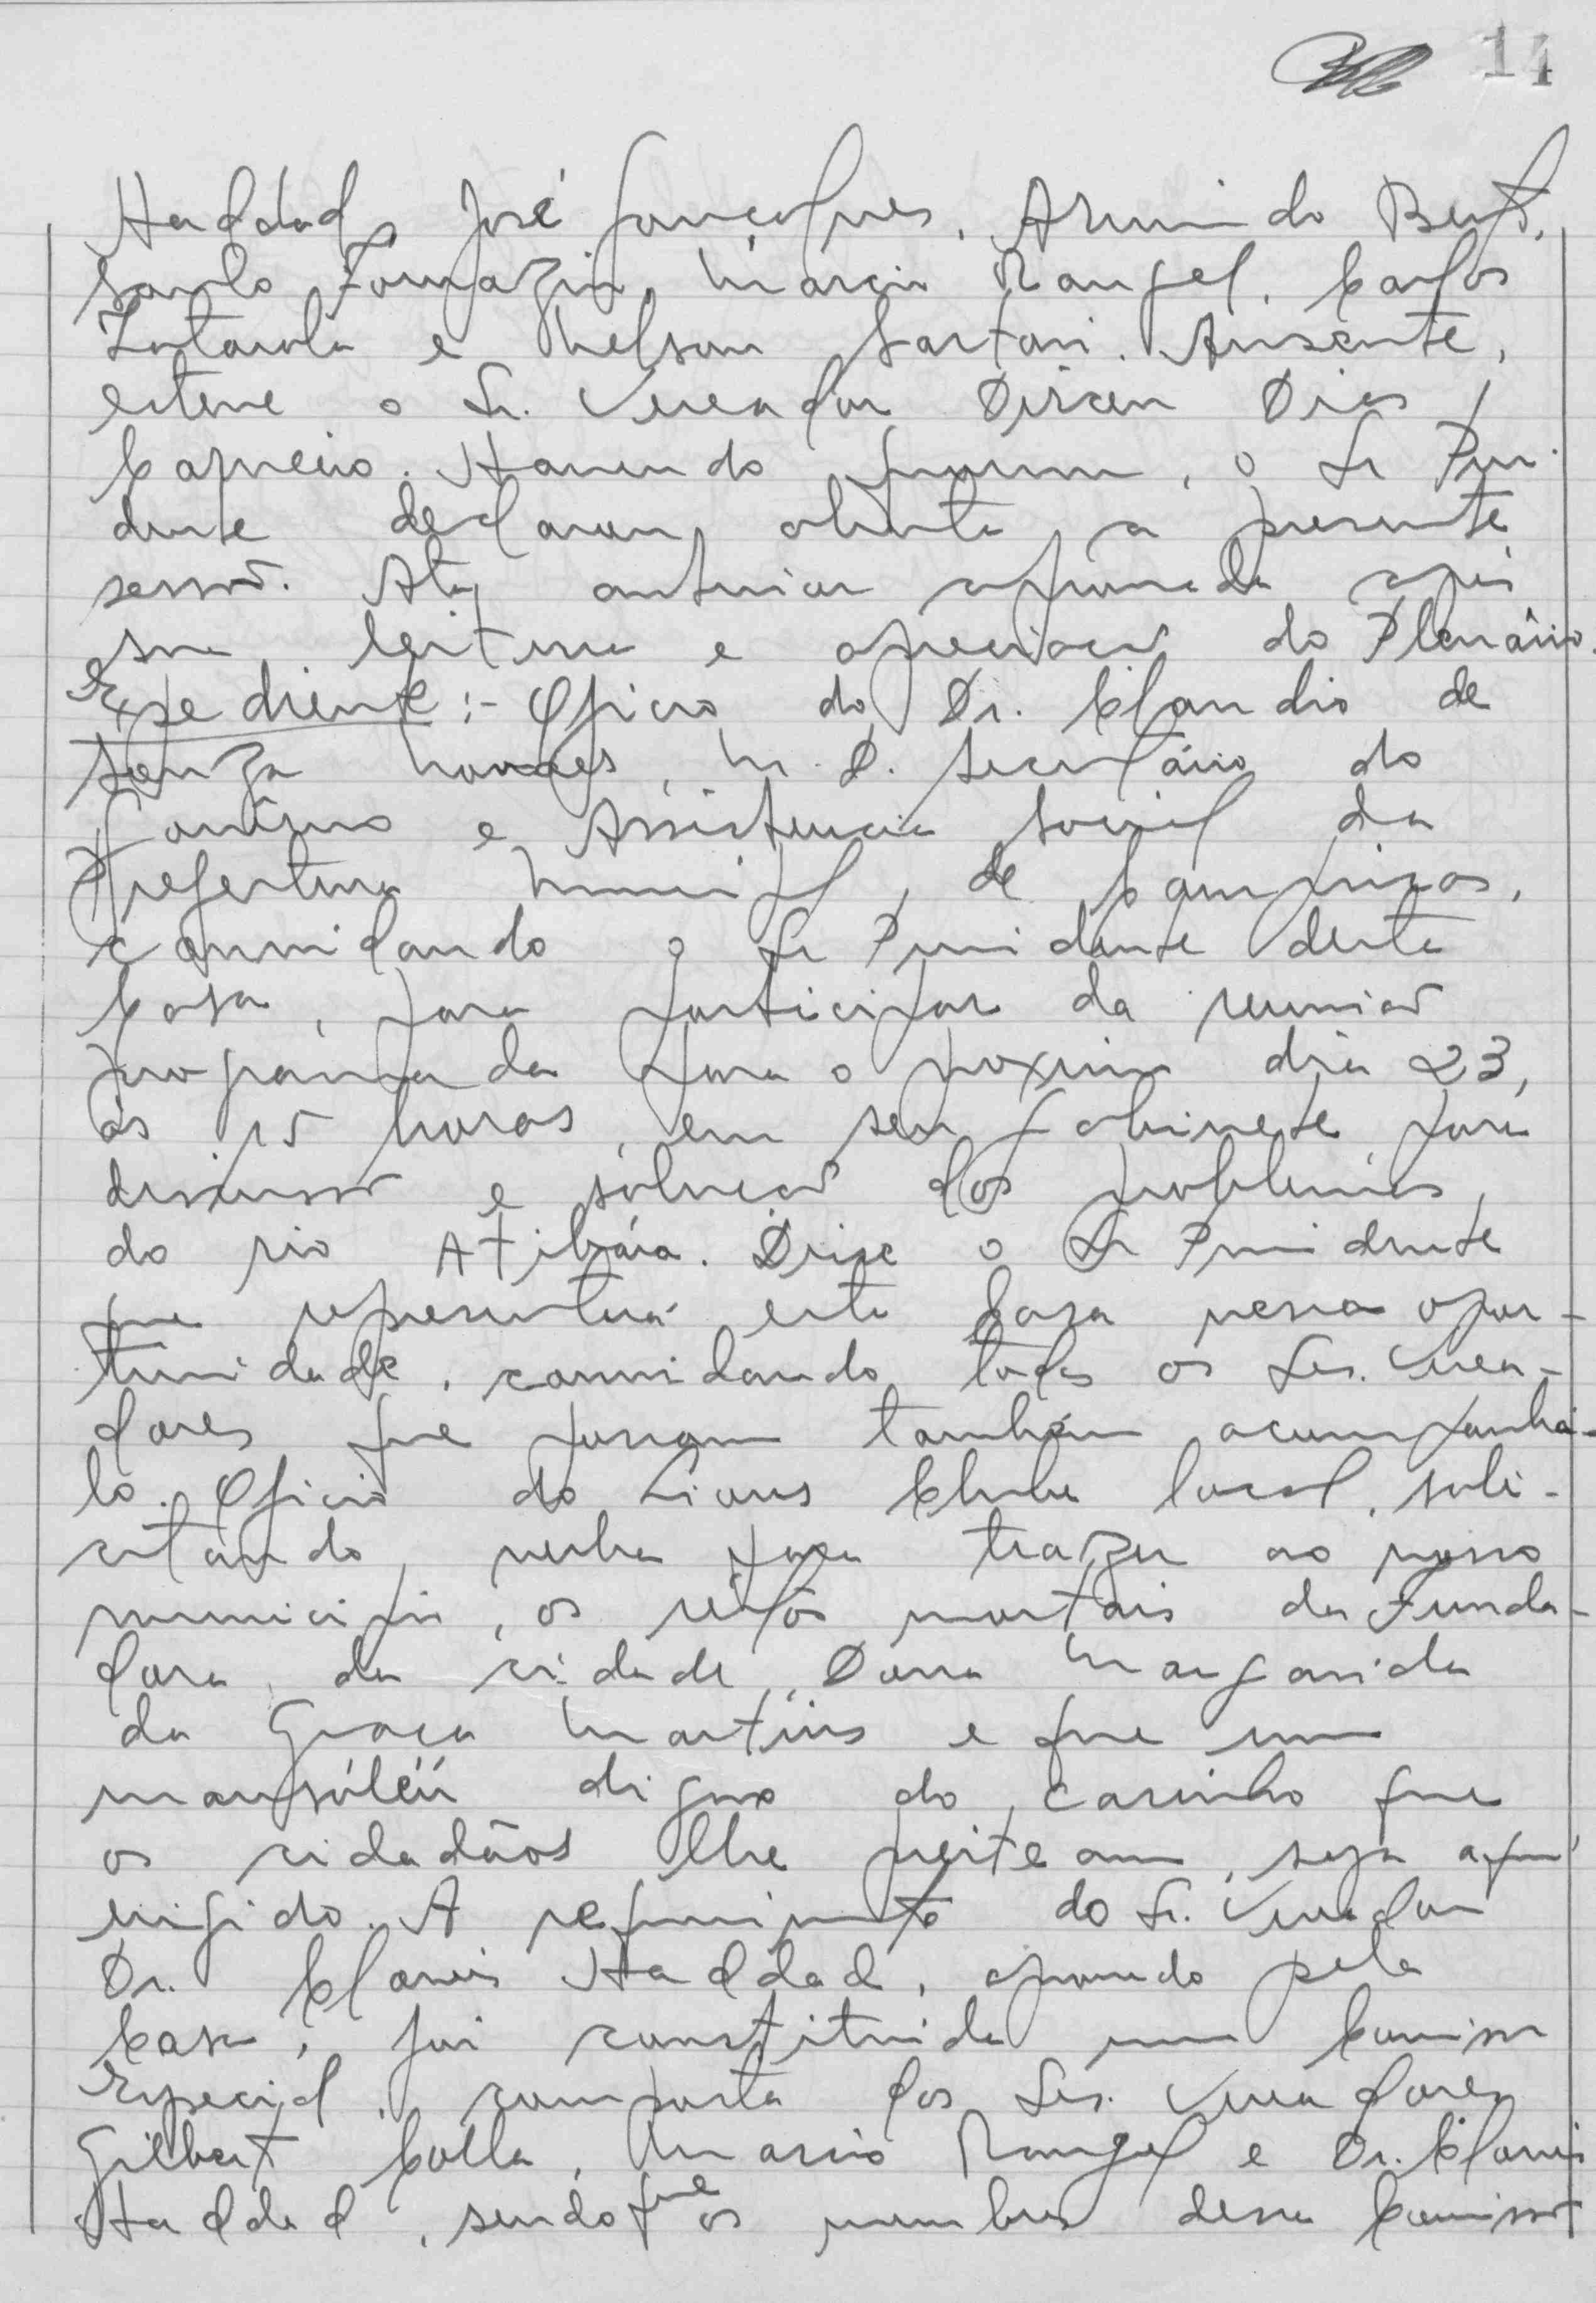 14
Haddad, José Gonçalves, Armindo Bert,
Santo Fomazin, Márcio Rangel, Carlos
Zutarola e Nelson Sartori. Ausente,
esteve o Sr. Vereador Dirceu Dias
Carneiro. Havendo quorum, o Sr Presi-
dente declarou aberta a presente
sessão. Ata anterior aprovada após
sua leitura e apreciação do Plenário.
Expediente:- Ofício do Dr. Claudio de
Souza Novaes, M.D. Secretário do
Govêrno e Assistencia Social da
Prefeitura Municipal de Campinas,
convidando o Sr Presidente desta
Casa, para participar da reunião
programada para o proximo dia 23,
às 15 horas, em seu gabinete para
discussão e solução dos problemas
do rio Atibáia. Disse o Sr Presidente
que representará esta Casa nessa opor-
tunidade, convidando todos os Srs. Verea-
dores que possam também acompanhá-
lo. Ofício do Lions Clube local, soli-
citando verba para trazer ao nosso
municipio, os restos mortais da Funda-
dora da cidade, Dona Margarida
da Graça Martins e que um
mausoléu digno do carinho que
os cidadãos lhe preiteam, seja aqui
erigido. A requerimento do Sr. Vereador
Dr. Clovis Haddad, aprovado pela
Casa, foi constituida uma Comissão
Especial, composta dos Srs. Vereadores
Gilbert Colla, Marcio Rangel e Dr. Clovis
Haddad, sendo que os membros dessa Comissão